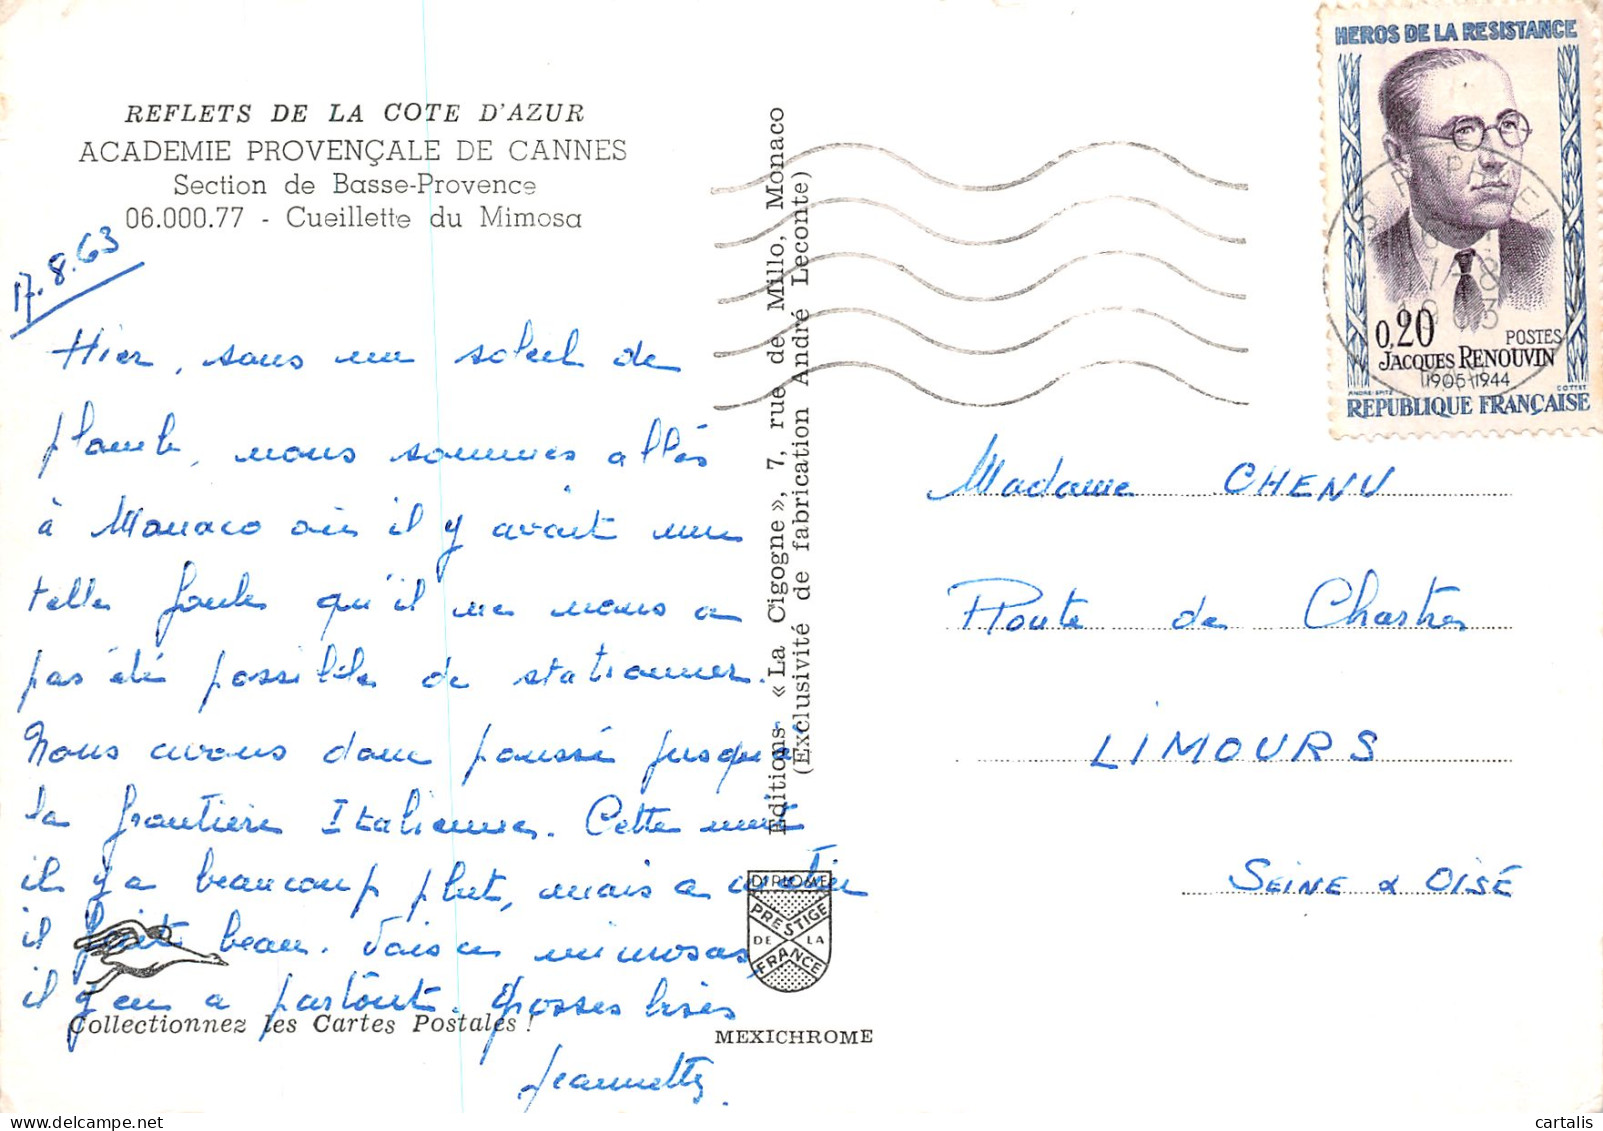 REFLETS DE LA COTE D'AZUR
ACADEMIE PROVENÇALE DE CANNES
Section de Basse-Provence
06.000.77 - Cueillette du Mimosa
17.8.63
Hier, sous un soleil de
plomb, nous sommes allés
à Monaco où il y avait une
telle foule qu'il ne nous a
pas été possible de stationner.
Nous avons donc poussé jusqu'à
la frontière Italienne. Cette nuit
il y a beaucoup plut, mais ce matin
il fait beau. Vois ces mimosas
il y en a partout. Grosses bises
Jeannette.
Collectionnez les Cartes Postales !
Editions «La Cigogne», 7, rue de Millo, Monaco
(Exclusivité de fabrication André Leconte)
DIPLOME
PRESTIGE
DE LA
FRANCE
MEXICHROME
HEROS DE LA RESISTANCE
ST RAPHAEL
17-8
1963
0,20
POSTES
JACQUES RENOUVIN
1905-1944
ANDRE-SPITZ
COTTET
REPUBLIQUE FRANÇAISE
Madame CHENU
Route de Chartres
LIMOURS
SEINE & OISE
cartalis